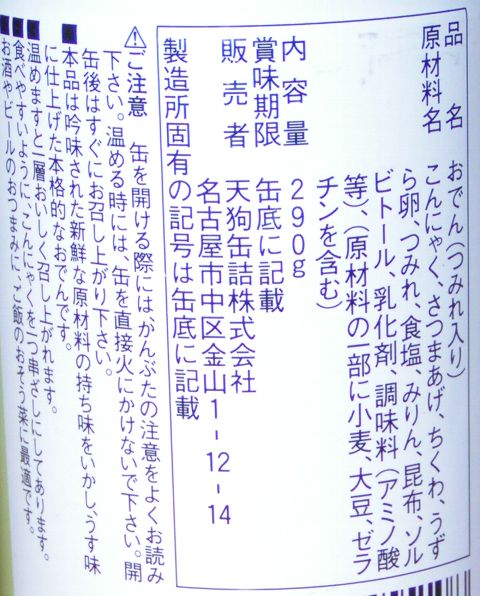 品名 おでん(つみれ入り)
原材料名 こんにゃく、さつまあげ、ちくわ、うず
ら卵、つみれ、食塩、みりん、昆布、ソル
ビトール、乳化剤、調味料(アミノ酸
等)、(原材料の一部に小麦、大豆、ゼラ
チンを含む)
内容量 290g
賞味期限 缶底に記載
販売者 天狗缶詰株式会社
名古屋市中区金山1-12-14
製造所固有の記号は缶底に記載
⚠ご注意 缶を開ける際には、かんぶたの注意をよくお読み
下さい。温める時には、缶を直接火にかけないで下さい。開
缶後はすぐにお召し上がり下さい。
■本品は吟味された新鮮な原材料の持ち味をいかし、うす味
に仕上げた本格的なおでんです。
■温めますと一層おいしく召し上がれます。
■食べやすいように、こんにゃくを一つ串ざしにしてあります。
■お酒やビールのおつまみに、ご飯のおそう菜に最適です。